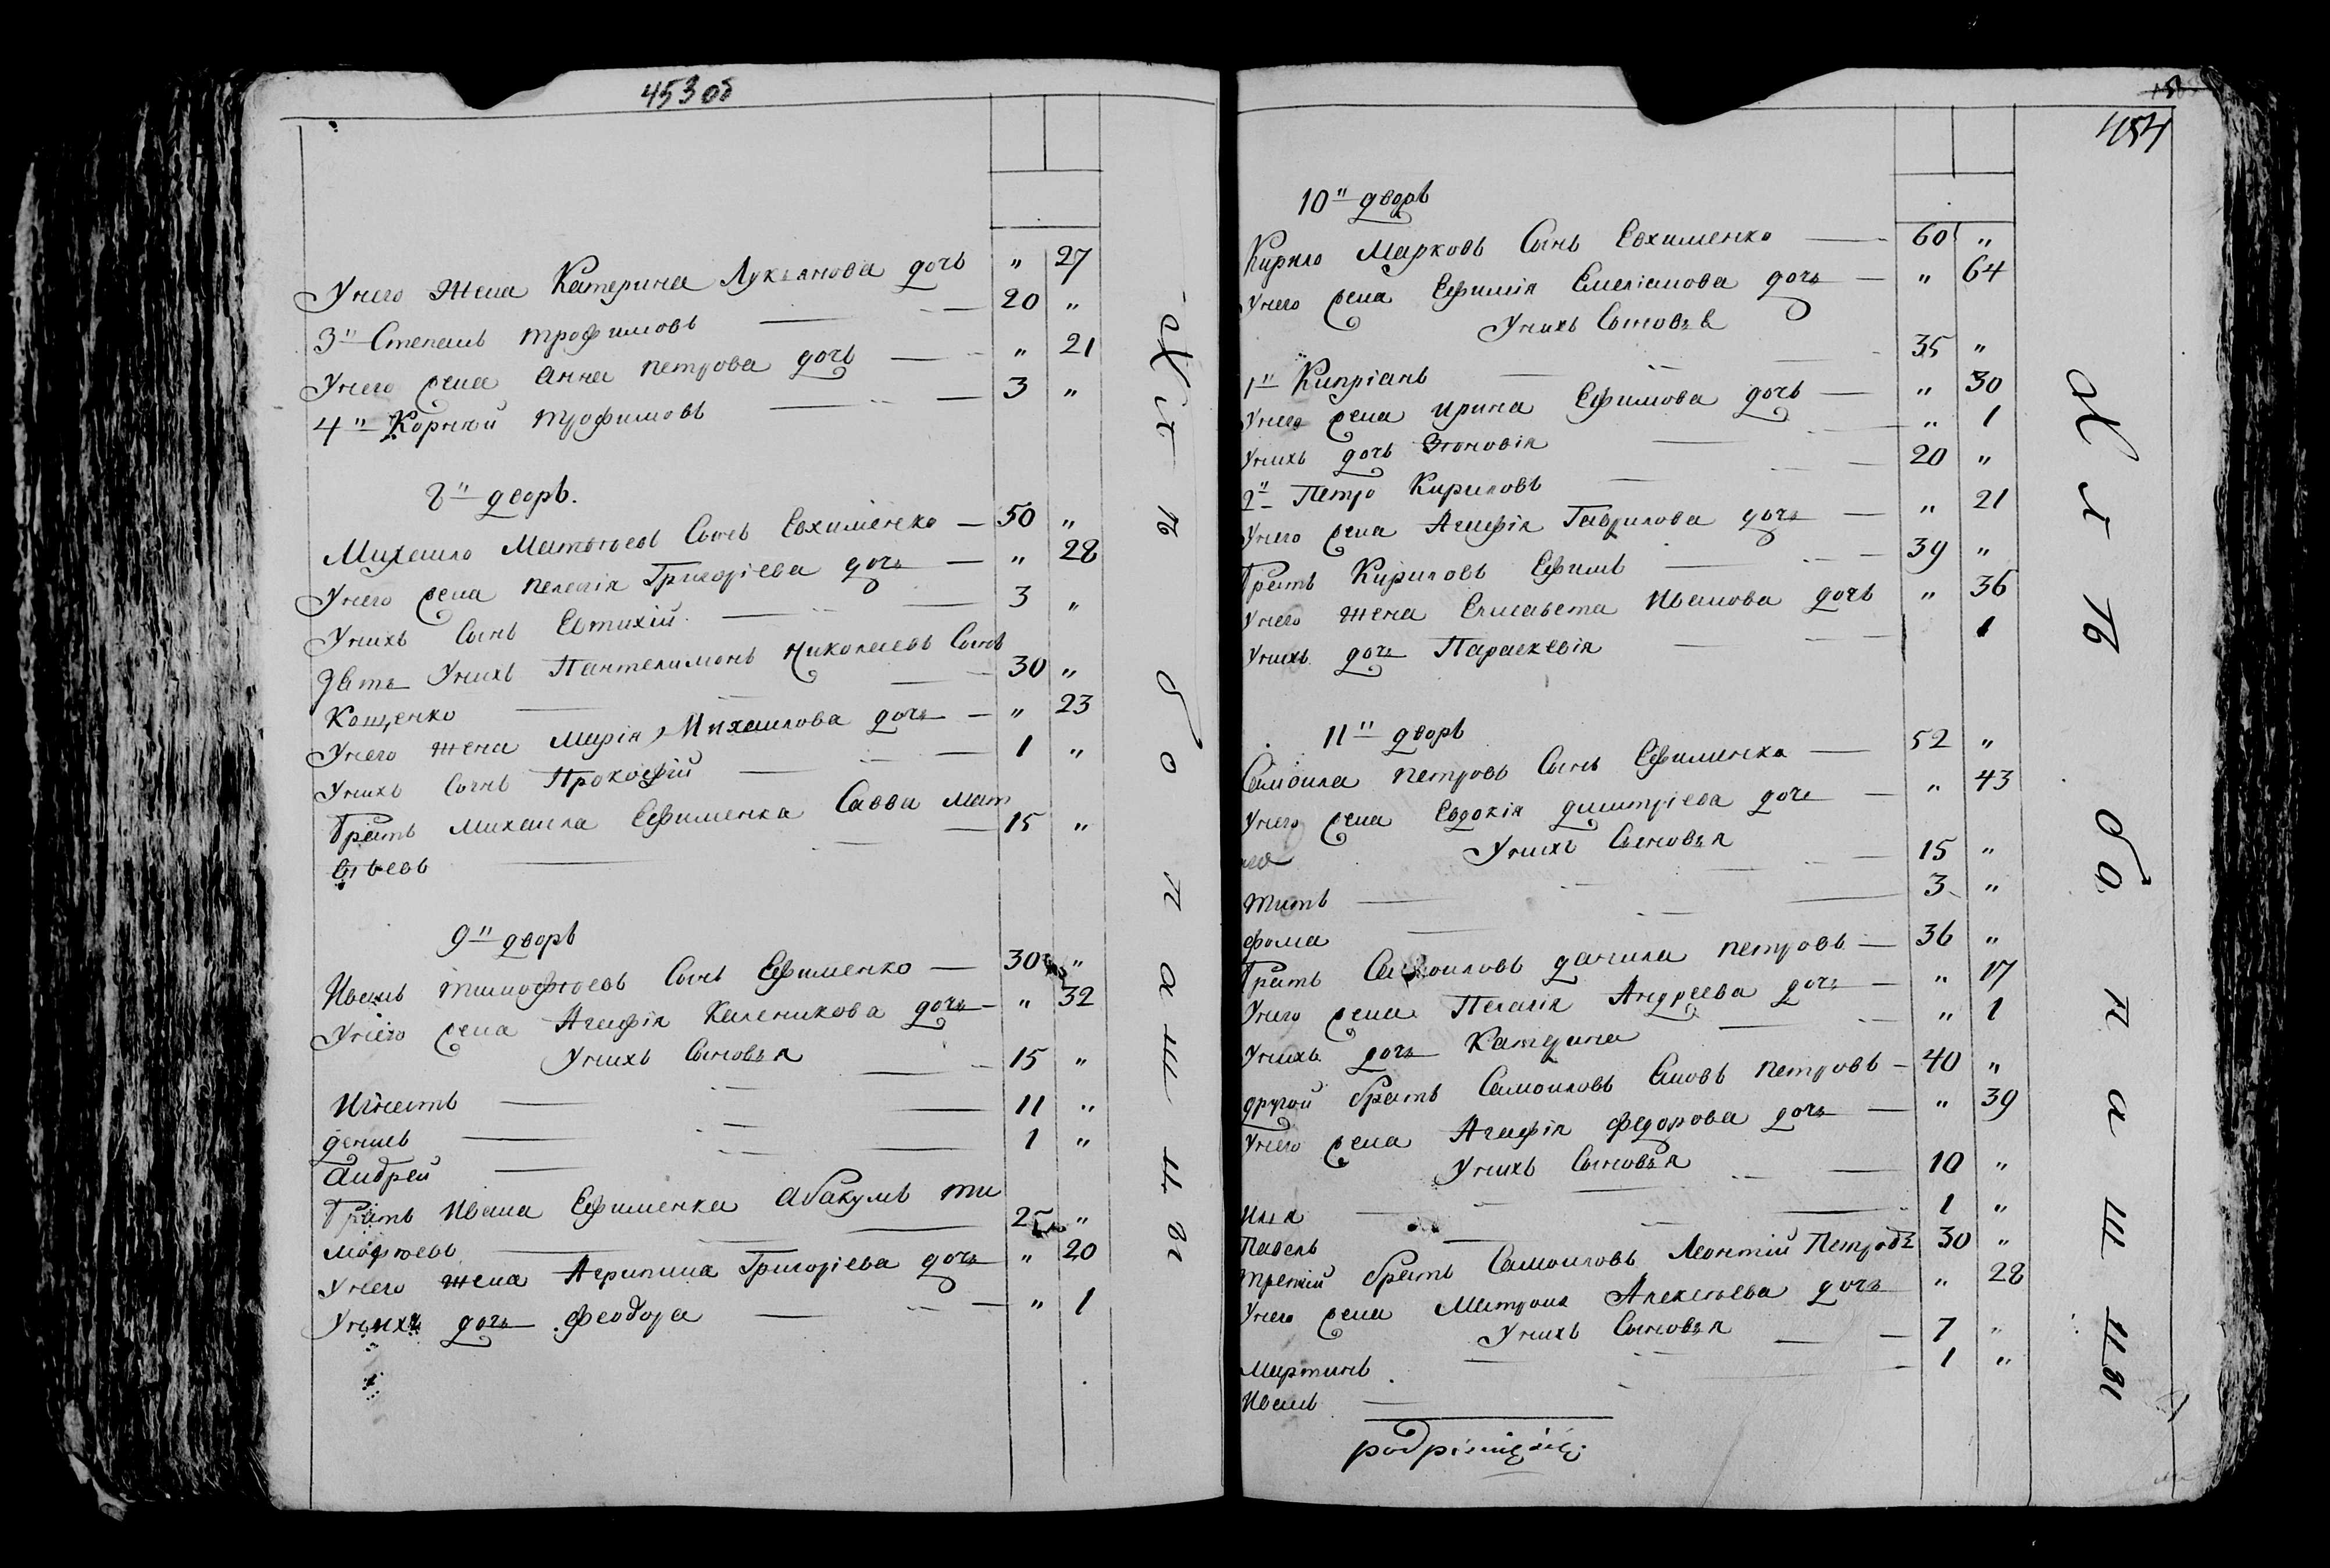 453 об
У него Жена Катерина Лукьянова дочь " 27
3й Степанъ Трофимовъ 20 "
У него жена Анна Петрова дочь " 21
4й Корнѣй Трофимовъ 3 "
8й дворъ.
Михаило Матвѣевъ Сынъ Евхименко 50 "
У него жена Пелагія Григоріева дочь " 28
У нихъ Сынъ Евтихій 3 "
Зять У нихъ Пантелимонъ Николаевъ Сынъ
Кощенко 30 "
У него жена Марія Михаилова дочь " 23
У нихъ Сынъ Прокофій 1 "
Братъ Михаила Ефименка Савва Мат
вѣевъ 15 "
9й дворъ
Иванъ Тимофѣевъ Сынъ Ефименко 30 "
У него жена Агафія Каленикова дочь " 32
У нихъ Сыновья
Игнатъ 15 "
Денисъ 11 "
Андрей 1 "
Братъ Ивана Ефименка Абакумъ Ти
мофѣевъ 25 "
У него жена Агрипина Григоріева дочь " 20
У нихъ дочь Феодора " 1
Нѣтъ
454
10й дворъ
Кирило Марковъ Сынъ Евхименко 60 "
У него жена Ефимія Емеліанова дочь " 64
У нихъ Сыновья
1й Кипріанъ 35 "
У него жена Ирина Ефимова дочь " 30
У нихъ дочь Зѣновія " 1
2й Петро Кириловъ 20 "
У него жена Агафія Гаврилова дочь " 21
Братъ Кириловъ Ефимъ 39 "
У него жена Елисавета Иванова дочь " 36
У нихъ дочь Параскевія 1
11й дворъ
Самоила Петровъ Сынъ Ефименко 52 "
У него жена Евдокія Димитріева дочь " 43
У нихъ Сыновья
Титъ 15 "
Фома 3 "
Братъ Самоиловъ Данила Петровъ 36 "
У него жена Пелагія Андреева дочь " 17
У нихъ дочь Катерина " 1
другой братъ Самоиловъ Петровъ 40 "
У него жена Агафія Федорова дочь " 39
У нихъ Сыновья
Илья 10 "
Павелъ 1 "
третій братъ Самоиловъ Леонтій Петровъ 30 "
У него жена Матрона Алексѣева дочь " 28
У нихъ Сыновья
Мартинъ 7 "
Иванъ 1 "